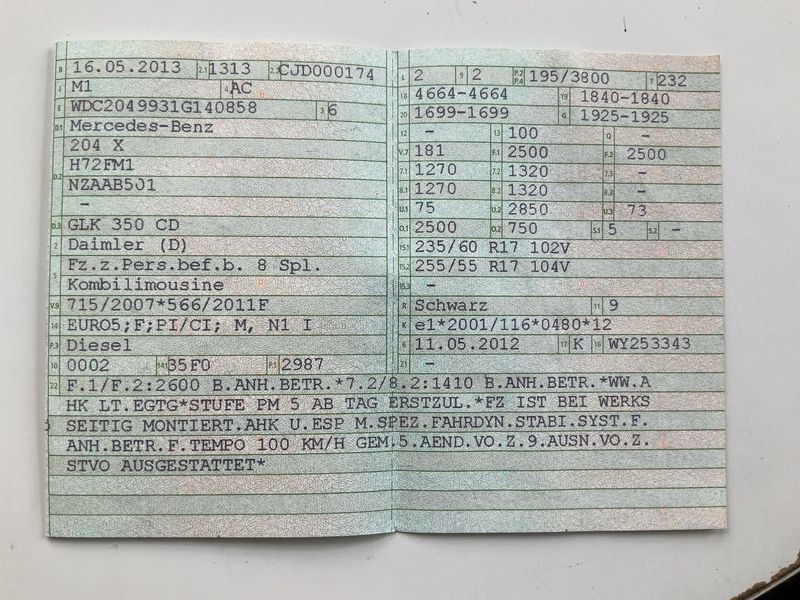 B 16.05.2013 2.1 1313 2.2 CJD000174
J M1 4 AC
E WDC2049931G140858 3 6
D.1 Mercedes-Benz
204 X
D.2 H72FM1
NZAAB501
-
D.3 GLK 350 CD
2 Daimler (D)
5 Fz.z.Pers.bef.b. 8 Spl.
Kombilimousine
V.9 715/2007*566/2011F
14 EURO5;F;PI/CI; M, N1 I
P.3 Diesel
10 0002 14.1 35F0 P.1 2987
L 2 9 2 P.2 P.4 195/3800 T 232
18 4664-4664 19 1840-1840
20 1699-1699 G 1925-1925
12 - 13 100 Q -
V.7 181 F.1 2500 F.2 2500
7.1 1270 7.2 1320 7.3 -
8.1 1270 8.2 1320 8.3 -
U.1 75 U.2 2850 U.3 73
O.1 2500 O.2 750 S.1 5 S.2 -
15.1 235/60 R17 102V
15.2 255/55 R17 104V
15.3 -
R Schwarz 11 9
K e1*2001/116*0480*12
6 11.05.2012 17 K 16 WY253343
21 -
22 F.1/F.2:2600 B.ANH.BETR.*7.2/8.2:1410 B.ANH.BETR.*WW.A
HK LT.EGTG*STUFE PM 5 AB TAG ERSTZUL.*FZ IST BEI WERKS
SEITIG MONTIERT.AHK U.ESP M.SPEZ.FAHRDYN.STABI.SYST.F.
ANH.BETR.F.TEMPO 100 KM/H GEM.5.AEND.VO.Z.9.AUSN.VO.Z.
STVO AUSGESTATTET*